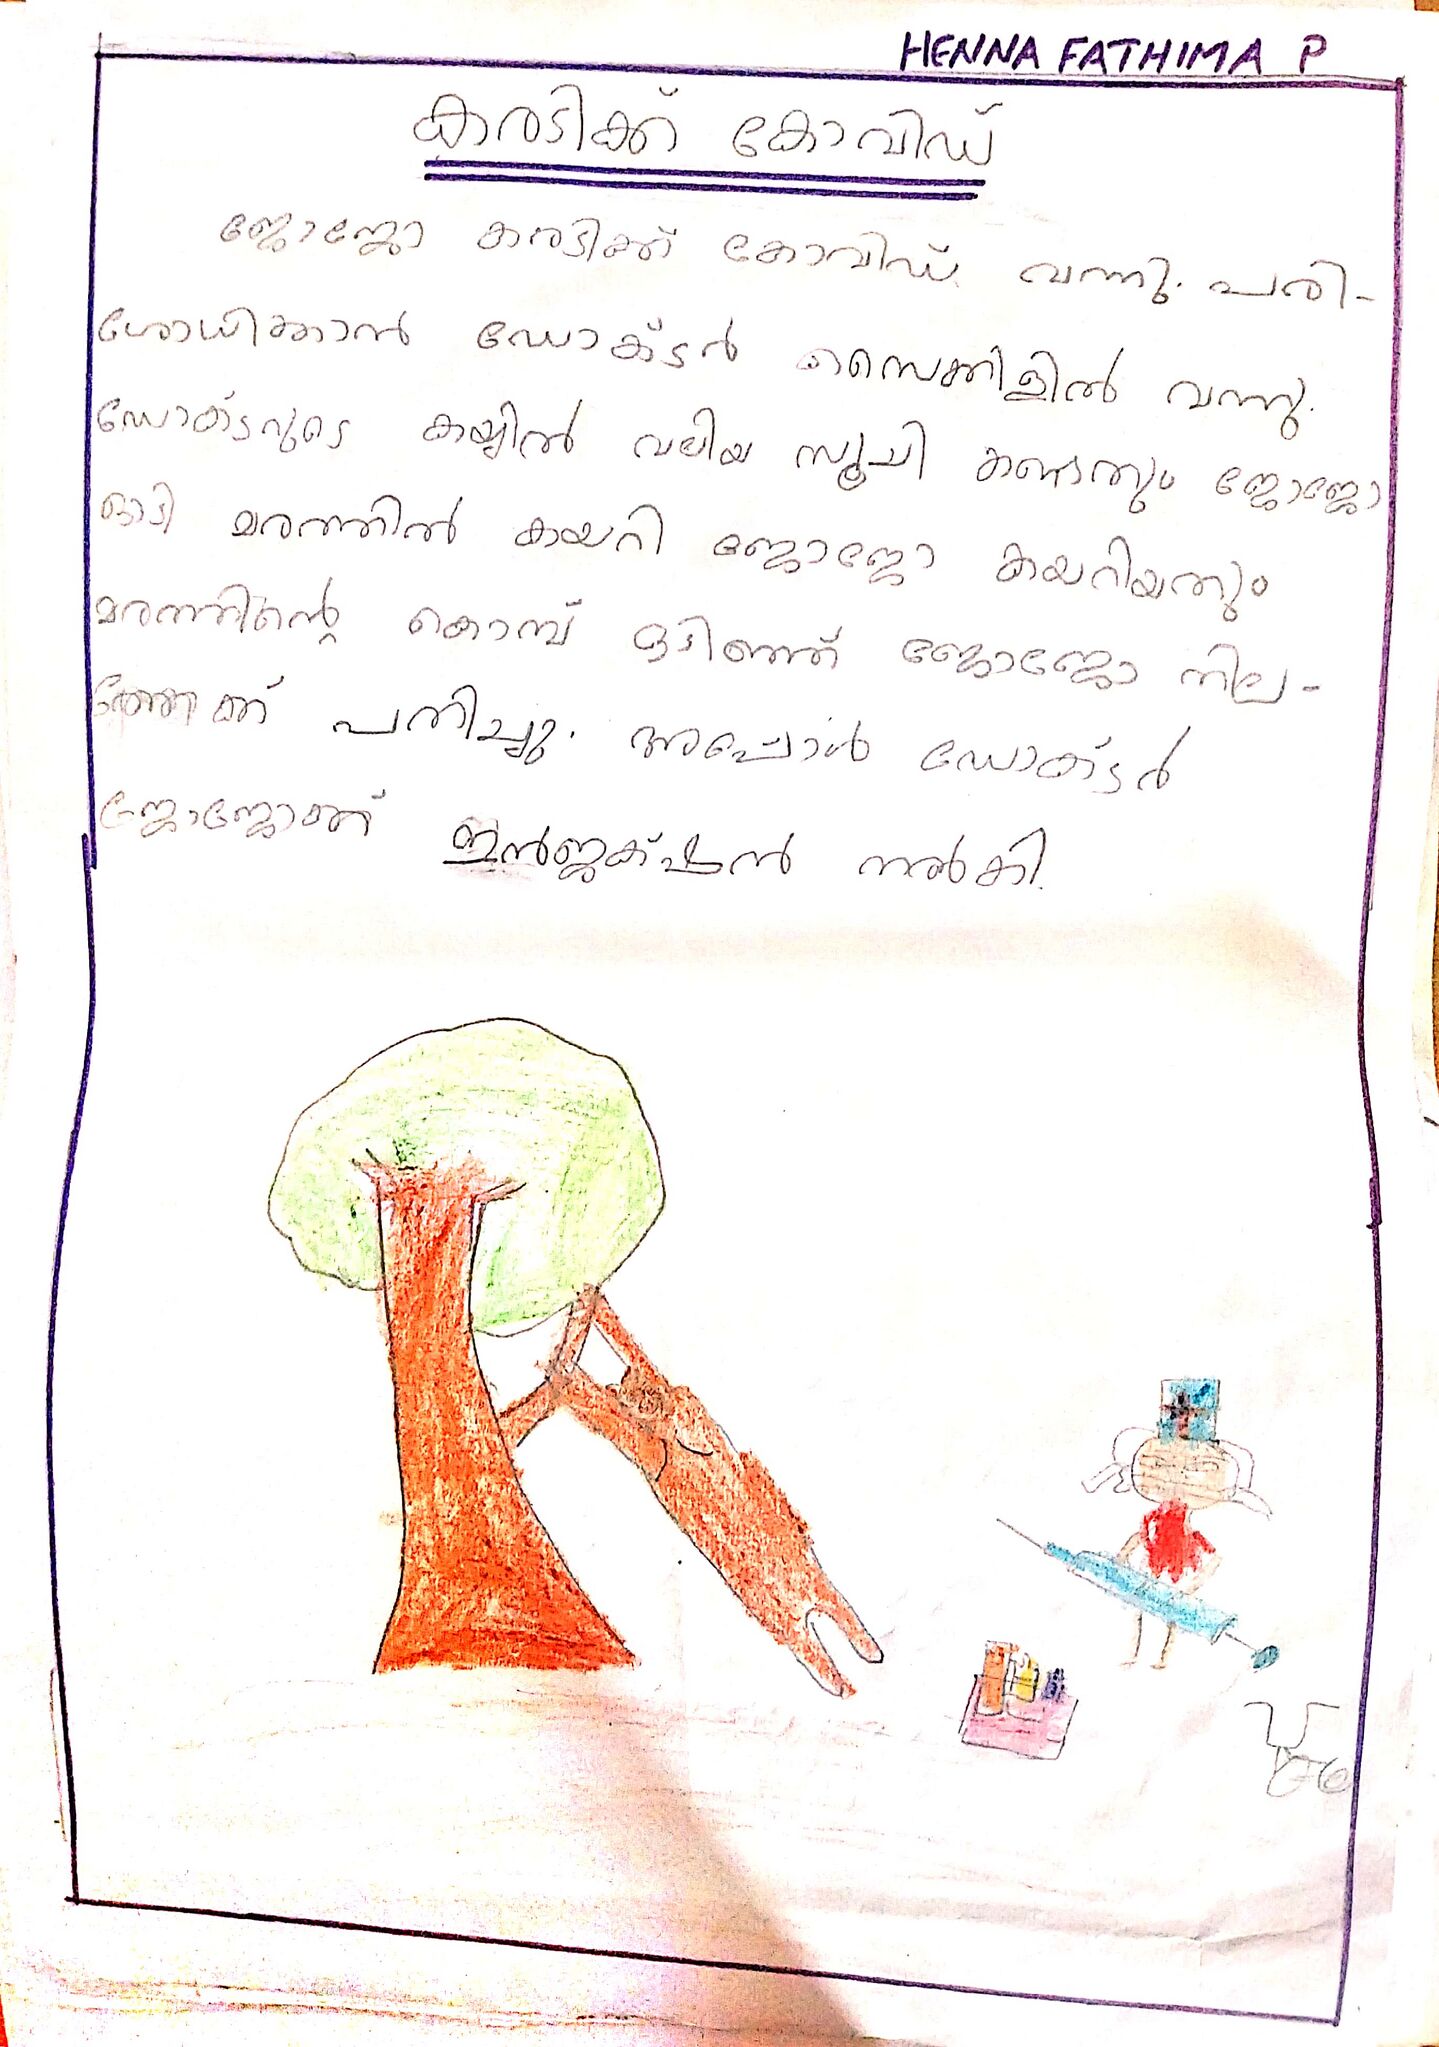 HENNA FATHIMA P
കരടിക്ക് കോവിഡ്
ജോജോ കരടിക്ക് കോവിഡ് വന്നു. പരി-
ശോധിക്കാൻ ഡോക്ടർ സൈക്കിളിൽ വന്നു.
ഡോക്ടറുടെ കയ്യിൽ വലിയ സൂചി കണ്ടതും ജോജോ
ഓടി മരത്തിൽ കയറി ജോജോ കയറിയതും
മരത്തിന്റെ കൊമ്പ് ഒടിഞ്ഞ് ജോജോ നില-
ത്തേക്ക് പതിച്ചു. അപ്പൊൾ ഡോക്ടർ
ജോജോക്ക് ഇൻജക്ഷൻ നൽകി.